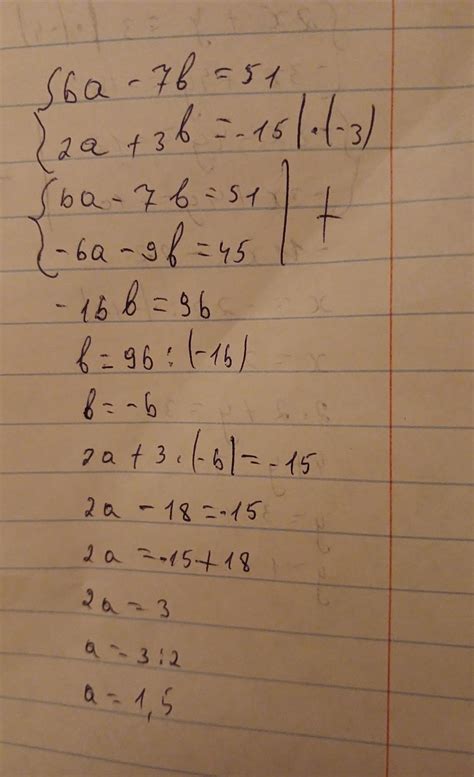 {6a - 7b = 51
{2a + 3b = -15 | · (-3)
{6a - 7b = 51 | +
{-6a - 9b = 45
-16b = 96
b = 96 : (-16)
b = -6
2a + 3 · (-6) = -15
2a - 18 = -15
2a = -15 + 18
2a = 3
a = 3 : 2
a = 1,5